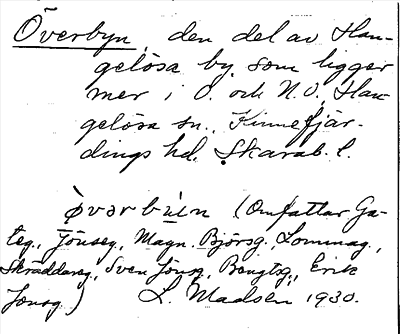 Överbyn, den del av Han-
gelösa by som ligger
mer i O. och N.O. Han-
gelösa sn., Kinnefjär-
dings hd. Skarab. l.
(Omfattar Ga-
teg., Jönseg., Magn. Björsg., Lommag.,
Skräddareg., Sven Jönsg., Bengtsg., Erik
Jonsg.) L. Madsén 1930.